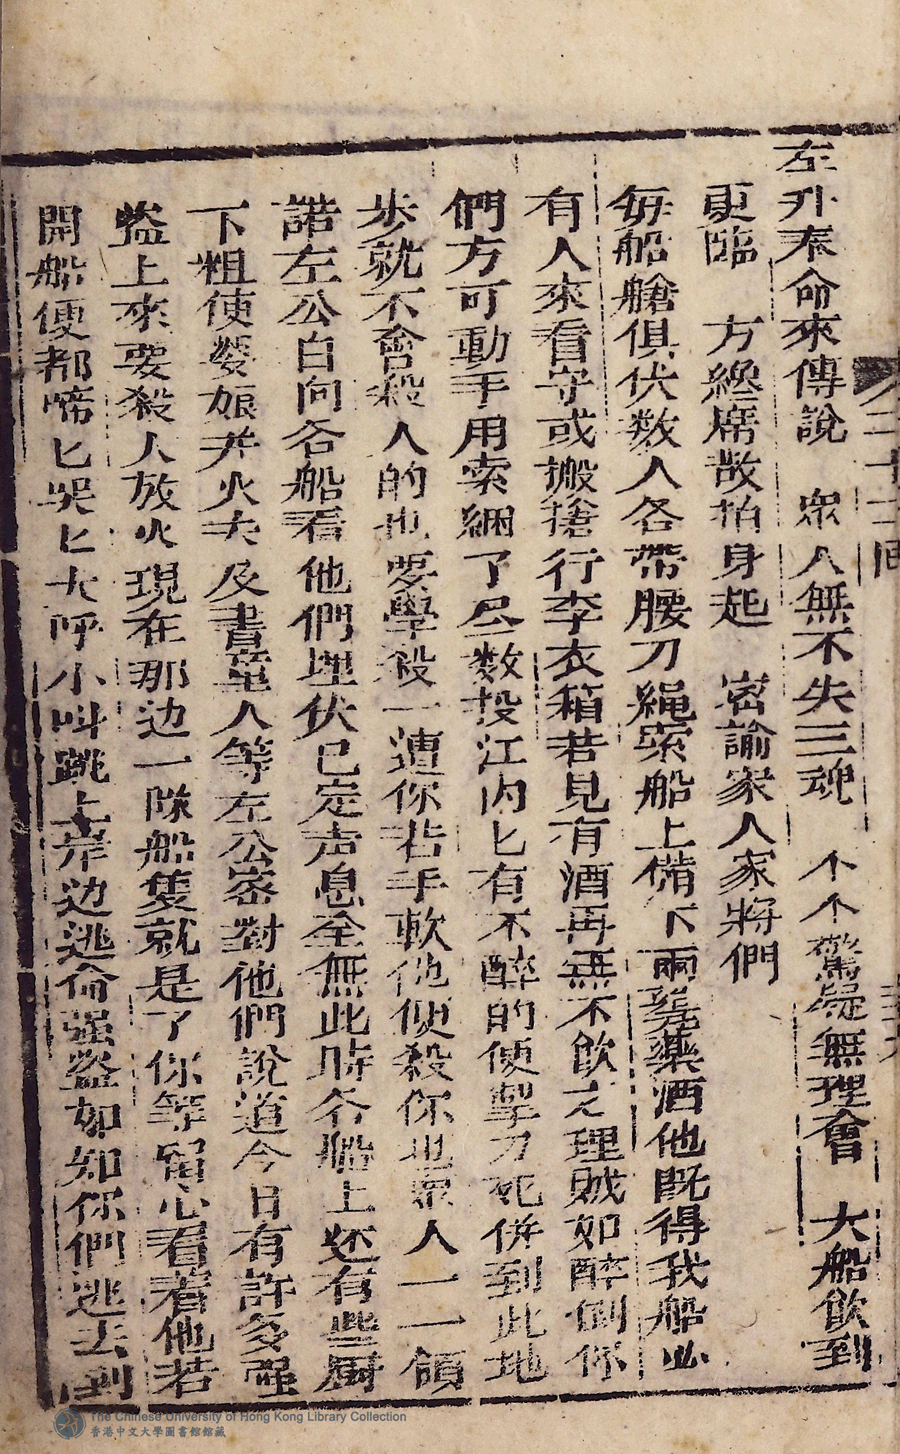 二十一回
左升奉命來傳說　衆人無不失三魂　个个驚疑無理會　大船飲到
更臨　方纔席散抽身起　密諭家人家將們
每船艙俱伏数人各帶腰刀繩索船上備下兩甕藥酒他既得我船必
有人來看守或搬搶行李衣箱若見有酒再無不飲之理賊如醉倒你
們方可動手用索綑了尽数投江内匕有不醉的便掣刀死併到此地
步就不會殺人的也要學殺一遭你若手軟他便殺你也衆人一一領
諾左公自向各船看他們埋伏已定声息全無此時各船上还有些厨
下粗使婆娘并火夫及書童人等左公密對他們說道今日有許多强
盜上來要殺人放火現在那边一隊船隻就是了你等留心看着他若
開船便都啼匕哭匕大呼小叫跳上岸边逃命强盜如如你們逃去到
The Chinese University of Hong Kong Library Collection
香港中文大學圖書館館藏